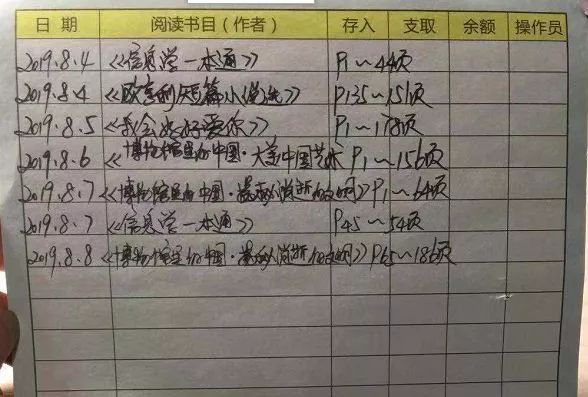 日 期 阅读书目(作者) 存入 支取 余额 操作员
2019.8.4 《信息学一本通》 P1~44页
2019.8.4 《欧亨利短篇小说选》 P135~151页
2019.8.5 《我会好好爱你》 P1~178页
2019.8.6 《博物馆里的中国·大美中国艺术 P1~156页
2019.8.7 《博物馆里的中国·最 消逝的文明》 P1~64页
2019.8.7 《信息学一本通》 P45~54页
2019.8.8 《博物馆里的中国·最 消逝的文明》 P65~186页